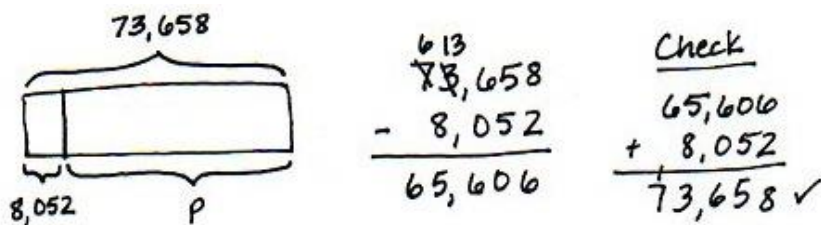 73,658
8,052
P
6 13
73,658
- 8,052
65,606
Check
65,606
+ 8,052
1
73,658 ✓